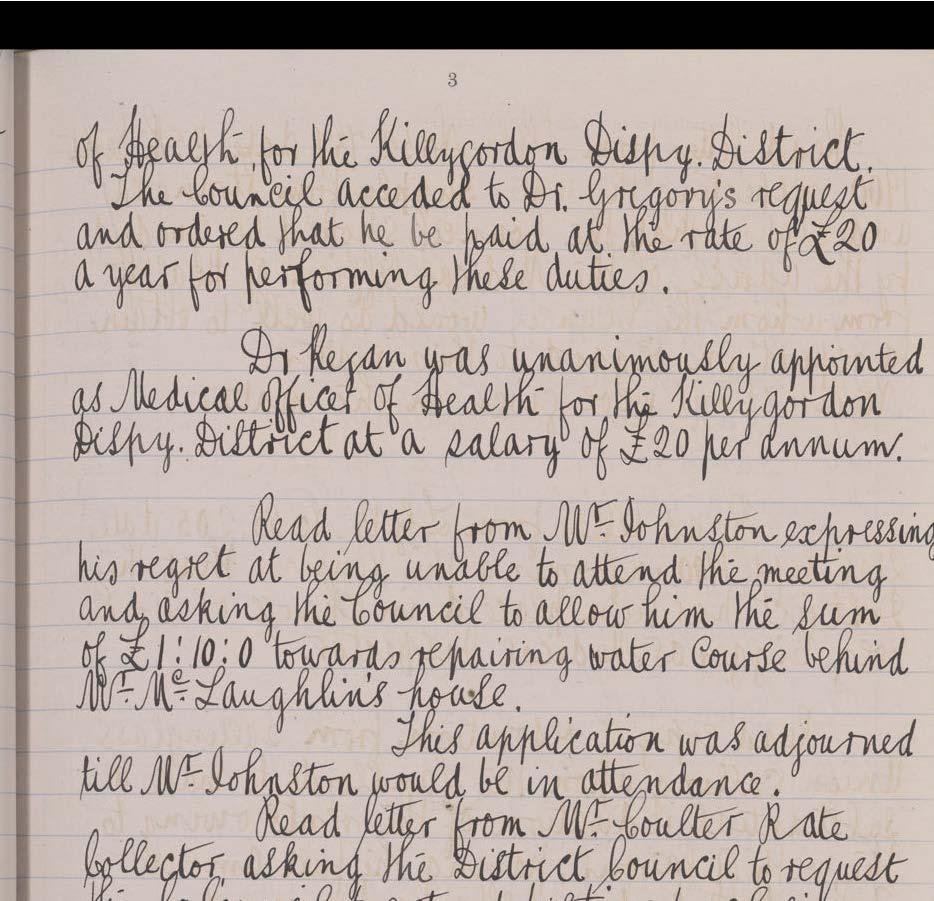 3
of Health for the Killygordon Dispy. District.
The Council acceded to Dr. Gregory's request
and ordered that he be paid at the rate of £20
a year for performing these duties.
Dr Kegan was unanimously appointed
as Medical officer of Health for the Killygordon
Dispy. District at a salary of £20 per annum.
Read letter from Mr. Johnston expressing
his regret at being unable to attend the meeting
and asking the Council to allow him the sum
of £1:10:0 towards repairing water Course behind
Mr. Mc Laughlin's house.
This application was adjourned
till Mr. Johnston would be in attendance.
Read letter from Mr. Coulter Rate
Collector, asking the District Council to request